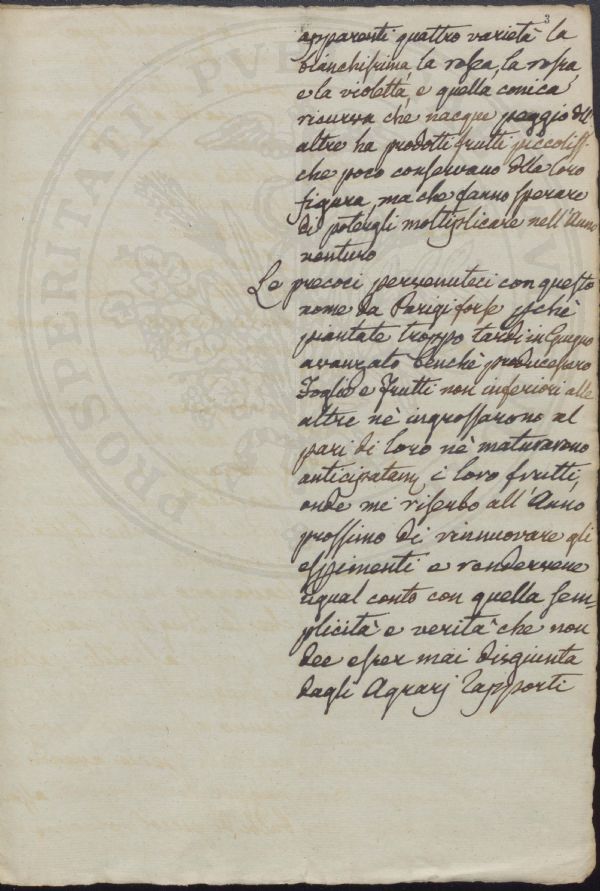 3
apparenti quattro varietà la
bianchissima, la rosea, la rossa,
e la violetta, e quella conica
ricurva che nacque peggio dell'
altre ha prodotti frutti piccoliss.
che poco conservano della loro
figura, ma che fanno sperare
di potergli moltiplicare nell'Anno
venturo
Le precoci pervenuteci con questo
nome da Parigi forse pchè
piantate troppo tardi in Giugno
avanzato benchè producessero
Foglie e Frutti non inferiori alle
altre nè ingrossarono al
pari di loro nè maturarono
anticipatam. i loro frutti,
onde mi riserbo all'Anno
prossimo di rinnuovare gli
esperimenti e rendervene
ugual conto con quella sem=
plicità e verità che non
dee esser mai disgiunta
dagli Agrarj Rapporti
PROSPERITATI PVBLICAE